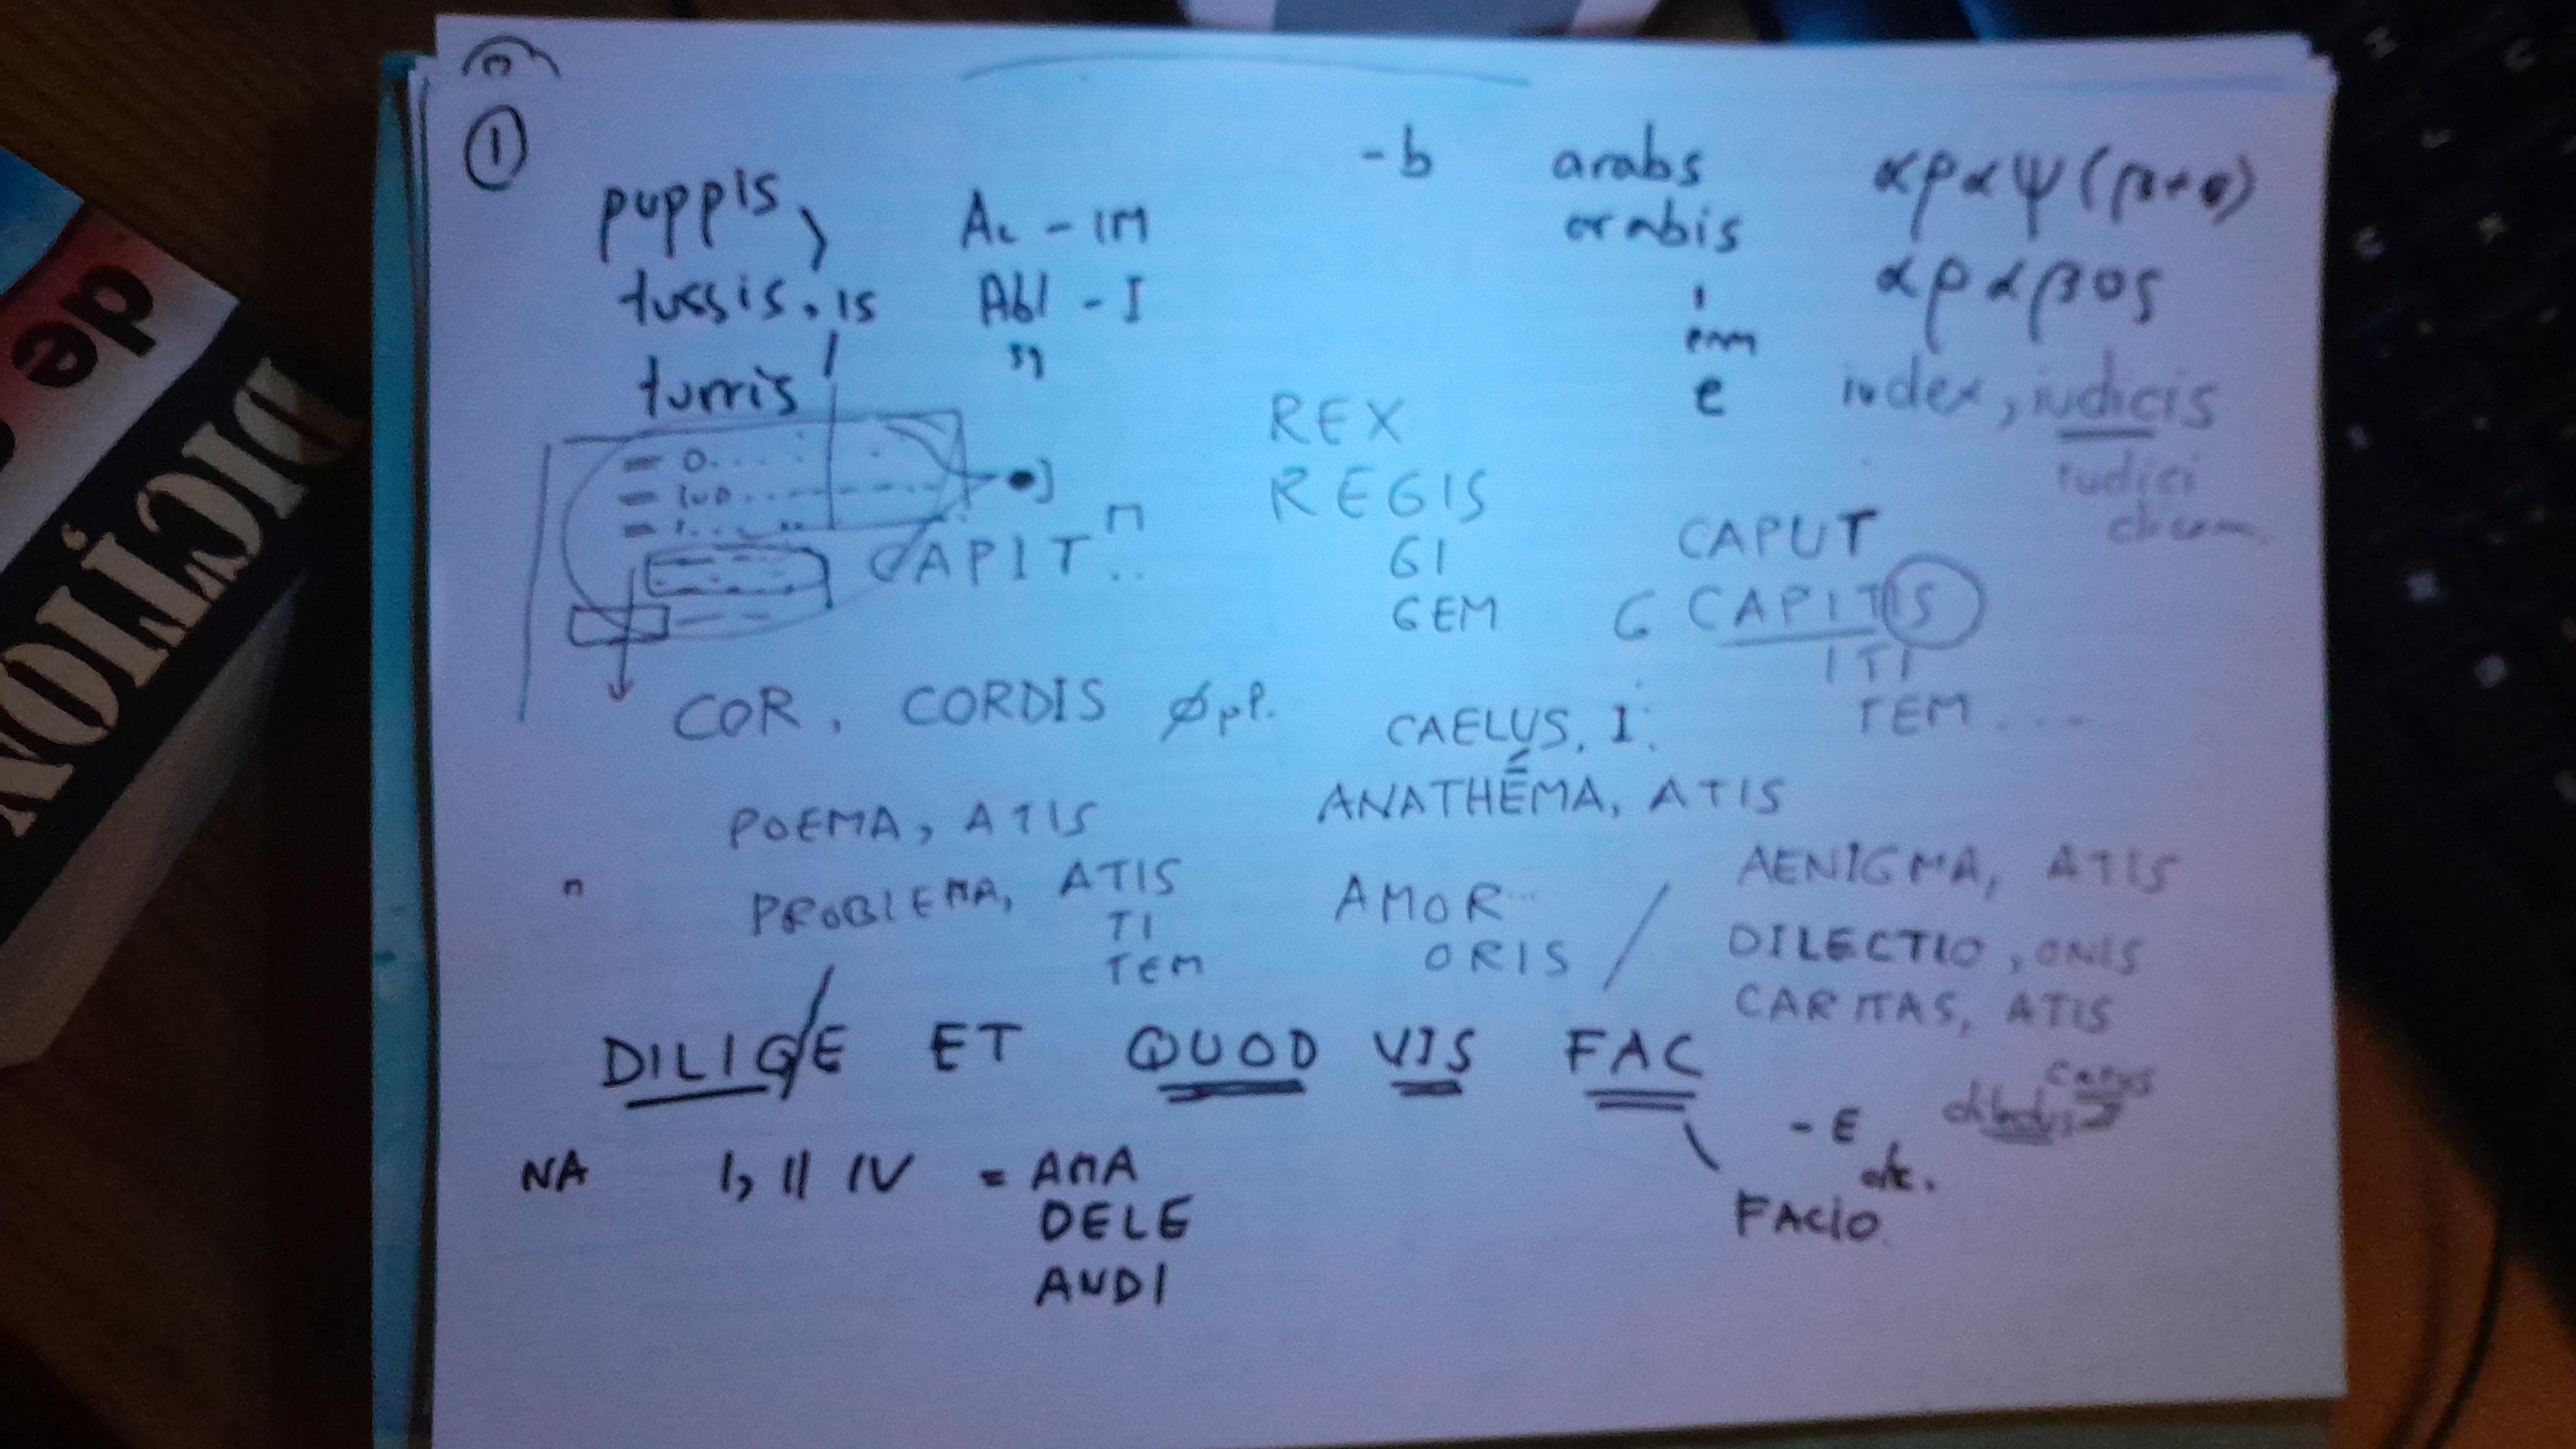 ①
puppis,
tussis, is
turris
Ac - IM
Abl - I
"
-b
arabs
arabis
i
em
e
αραψ (β+σ)
αραβος
iudex, iudicis
iudici
REX
REGIS
GI
GEM
CAPIT
n
CAPUT
G CAPITIS
ITI
TEM ...
COR, CORDIS
CAELUS, I
POEMA, ATIS
ANATHĒMA, ATIS
n
PROBLEMA, ATIS
TI
TEM
AMOR
ORIS
AENIGMA, ATIS
DILECTIO, ONIS
CARITAS, ATIS
DILIGE ET QUOD VIS FAC
carus
- E
etc.
FACIO
NA I, II IV = AMA
DELE
AUDI
de
DICȚION